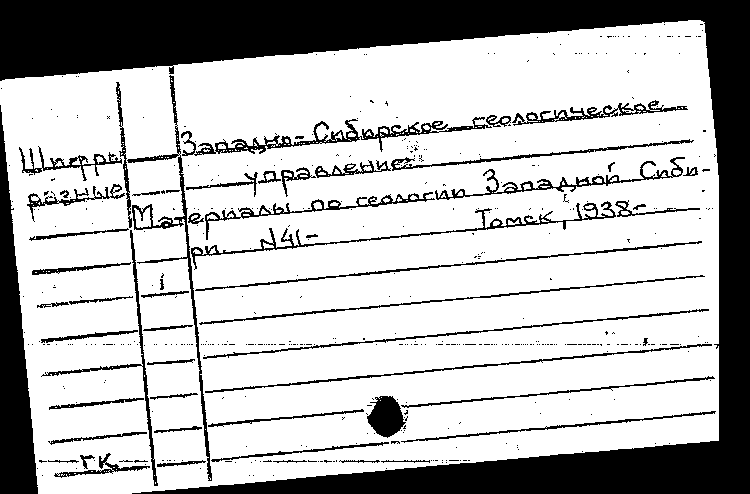 Западно-Сибирское геологическое
Шифры
управление
разные
Материалы по геологии Западной Сиби-
ри. N41- Томск, 1938-
1
ГК